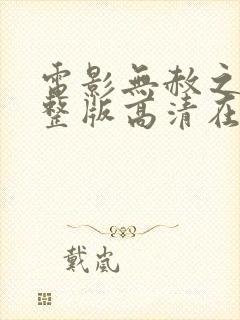 電影無赦之
整版高清在
戴嵐